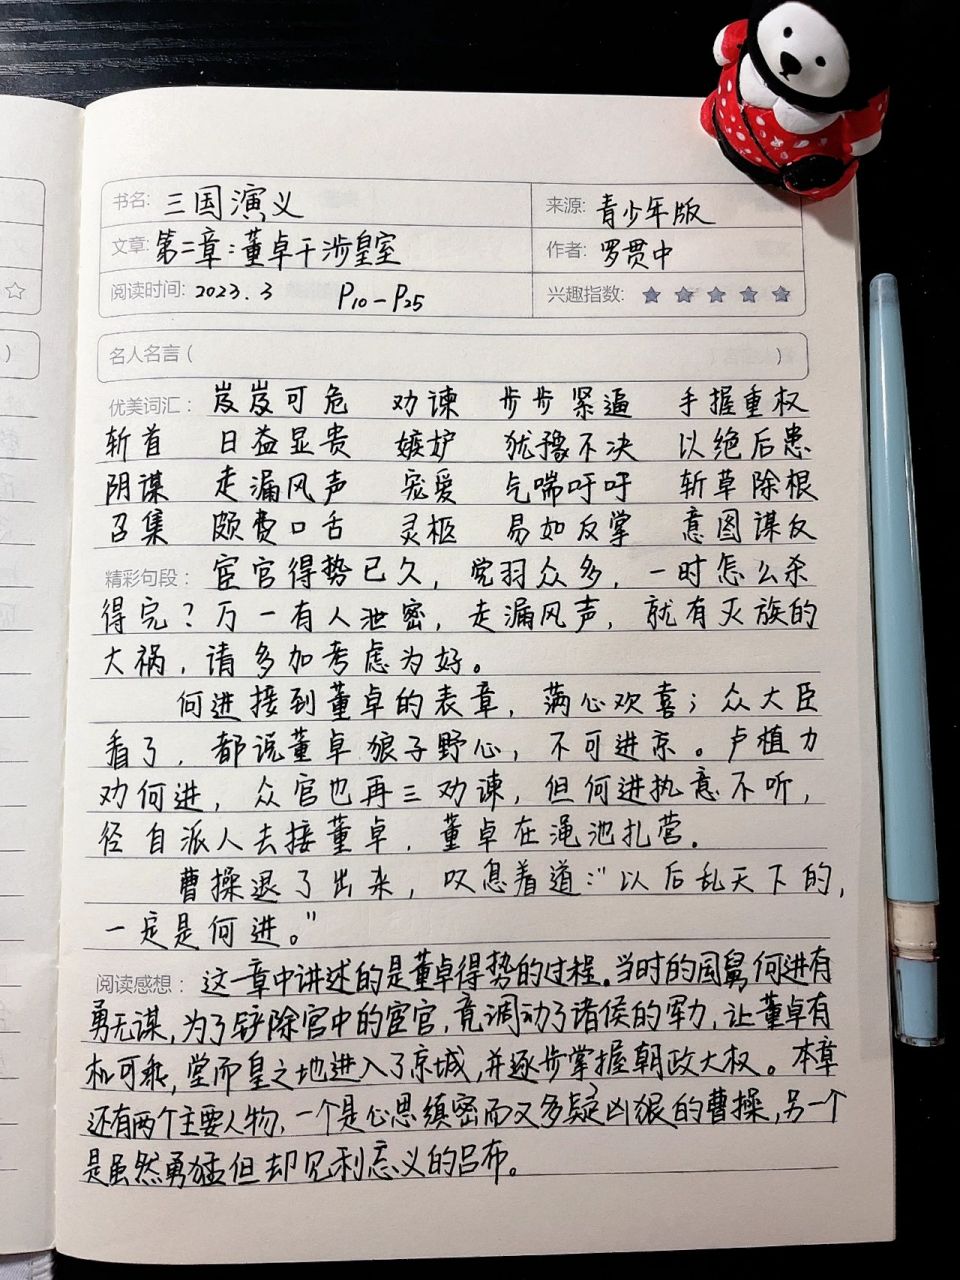 书名: 三国演义
来源: 青少年版
文章: 第二章:董卓干涉皇室
作者: 罗贯中
阅读时间: 2023.3 P10-P25
兴趣指数: ★★★★★
名人名言 ( )
优美词汇: 岌岌可危 劝谏 步步紧逼 手握重权
斩首 日益显贵 嫉妒 犹豫不决 以绝后患
阴谋 走漏风声 宠爱 气喘吁吁 斩草除根
召集 颇费口舌 灵柩 易如反掌 意图谋反
精彩句段: 宦官得势已久,党羽众多,一时怎么杀
得完?万一有人泄密,走漏风声,就有灭族的
大祸,请多加考虑为好。
何进接到董卓的表章,满心欢喜;众大臣
看了,都说董卓狼子野心,不可进京。卢植力
劝何进,众官也再三劝谏,但何进执意不听,
径自派人去接董卓,董卓在渑池扎营。
曹操退了出来,叹息着道:“以后乱天下的,
一定是何进。”
阅读感想: 这一章中讲述的是董卓得势的过程。当时的国舅何进有
勇无谋,为了铲除宫中的宦官,竟调动了诸侯的军力,让董卓有
机可乘,堂而皇之地进入了京城,并逐步掌握朝政大权。本章
还有两个主要人物,一个是心思缜密而又多疑凶狠的曹操,另一个
是虽然勇猛但却见利忘义的吕布。